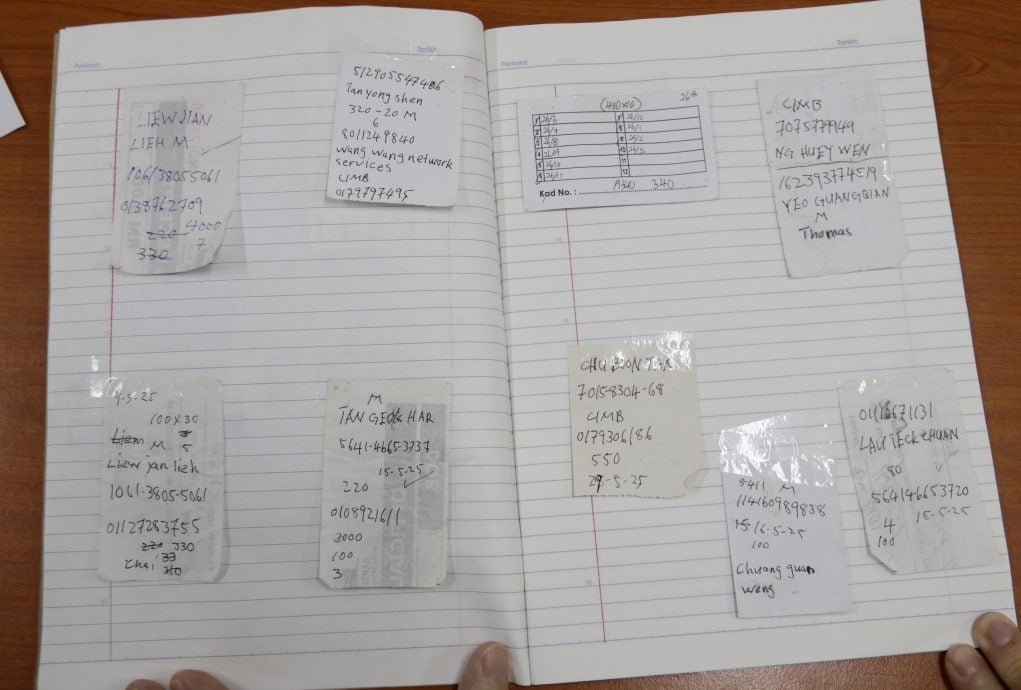 Perkara:
Tarikh:
LIEW JIAN
LIEH M
106138055061
0138762709
220 4000
7
330
512905547406
Tan yong shen
320-20 M
6
8011249840
wang wang network
services
CIMB
0179797495
9-5-25
100x30
Liem M 5
Liew jan lieh
1061-3805-5061
01127283755
220 330
33
M
TAN GEOK HAR
5641-4665-3737
15-5-25
220
0105921611
3000
100
3
Perkara:
Tarikh:
(400x10) 26th
1 26/6
2 26/7
3 26/8
4 26/9
5 26/10
6 26/11
26/12
26/1
9 26/2
10 26/3
11
12
Kad No.: A340 340
CIMB
7075779949
NG HUEY WEN
162393774519
YEO GUANGQIAN
M
Thomas
CHU BOON
7015-8304-68
CIMB
0179306186
550
29-5-25
5411 M
114160989838
16-5-25
100
Chuang guan
weng
01115671131
LAU TECK CHUAN
80
564146653720
4 15-5-25
100